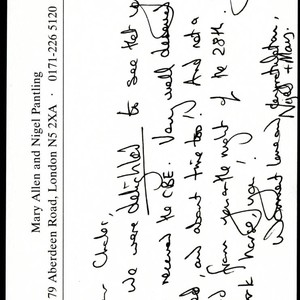 Mary Allen and Nigel Pantling
79 Aberdeen Road, London N5 2XA · 0171-226 5120
Charles,
We were delighted to see that
received the CBE. Very well deserved
and about time too! And not a
from you on the night of the 28th.
Warmest love and congratulations,
Nigel + Mary.